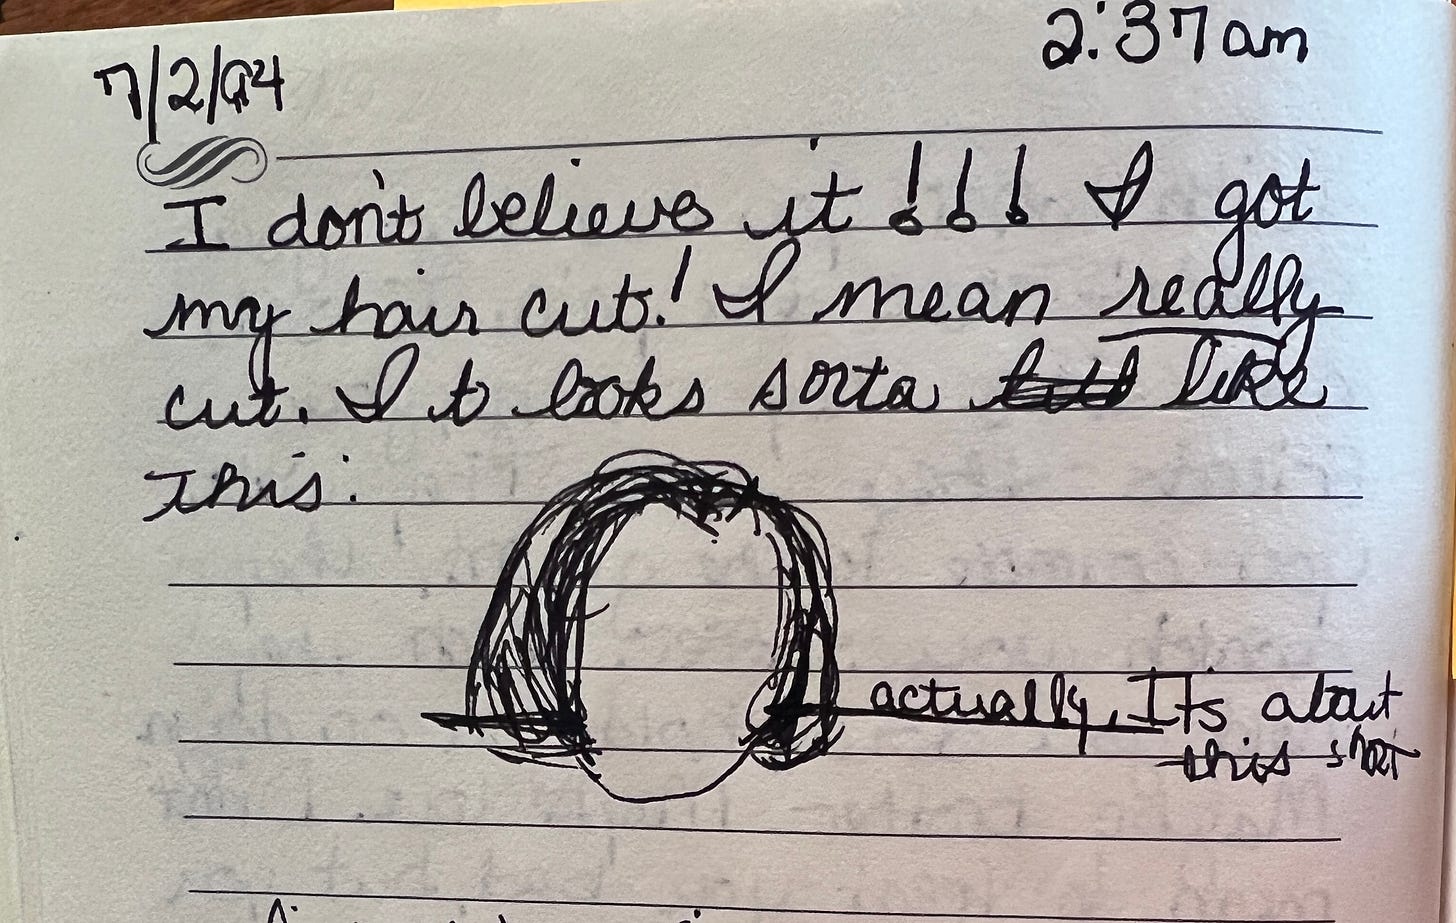 7/2/94
2:37am
I don't believe it!!! I got
my hair cut! I mean really
cut. It looks sorta like
this:
actually, It's about
this short